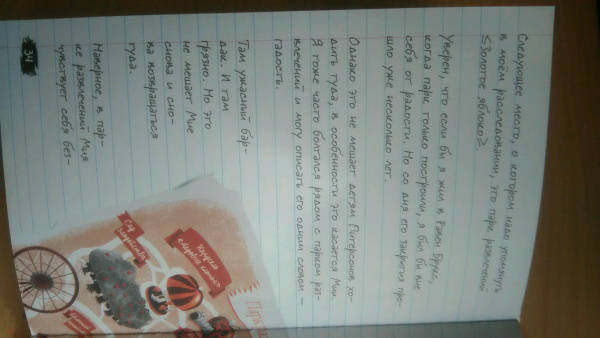 Следующее место, о котором надо упомянуть
в моём расследовании, это парк развлечений
≤Золотое яблоко≥.
Уверен, что если бы я жил в Рэвен Брукс,
когда парк только построили, я был бы вне
себя от радости. Но со дня его закрытия про-
шло уже несколько лет.
Однако это не мешает детям Питерсонов хо-
дить туда, в особенности это касается Мии.
Я тоже часто болтался рядом с парком раз-
влечений и могу описать его одним словом –
гадость.
Там ужасный бар-
дак. И там
грязно. Но это
не мешает Мие
снова и сно-
ва возвращаться
туда.
Наверное, в пар-
ке развлечений Мия
чувствует себя без-
34